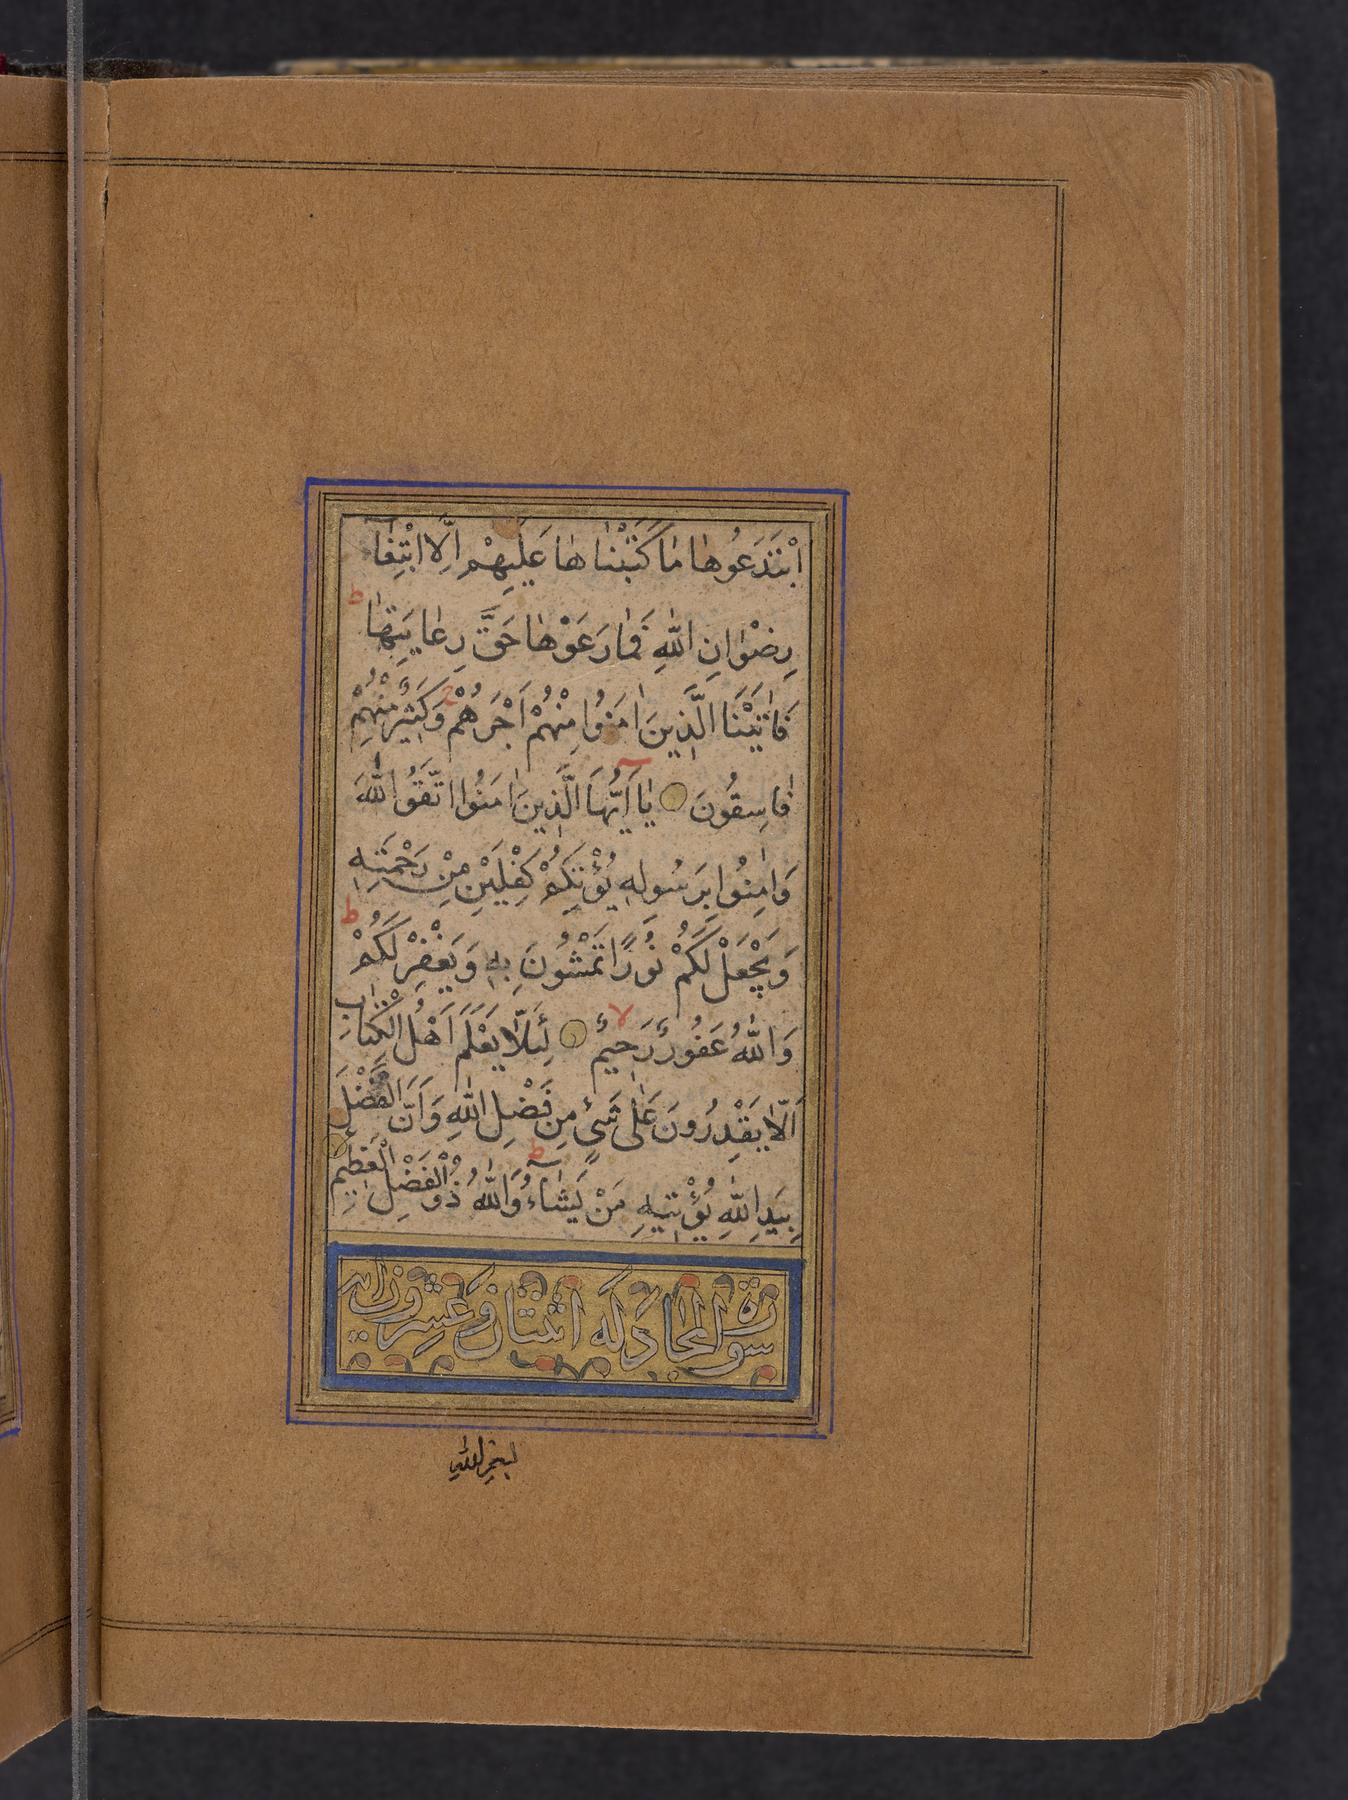 ابْتَدَعُوهٰا مٰا كَتَبْنٰاهٰا عَلَيْهِمْ اِلَّا ابْتِغٰٓاءَ
رِضْوٰانِ اللّٰهِ فَمٰا رَعَوْهٰا حَقَّ رِعٰايَتِهٰا ط
فَاٰتَيْنَا الَّذِينَ اٰمَنُوا مِنْهُمْ اَجْرَهُمْ وَكَثِيرٌ مِنْهُمْ
فٰاسِقُونَ يٰٓا اَيُّهَا الَّذِينَ اٰمَنُوا اتَّقُوا اللّٰهَ
وَاٰمِنُوا بِرَسُولِهِ يُؤْتِكُمْ كِفْلَيْنِ مِنْ رَحْمَتِهِ
وَيَجْعَلْ لَكُمْ نُورًا تَمْشُونَ بِهِ وَيَغْفِرْ لَكُمْ ط
وَاللّٰهُ غَفُورٌ رَحِيمٌ لا لِئَلَّا يَعْلَمَ اَهْلُ الْكِتٰابِ
اَلَّا يَقْدِرُونَ عَلٰى شَىْءٍ مِنْ فَضْلِ اللّٰهِ وَاَنَّ الْفَضْلَ
بِيَدِ اللّٰهِ يُؤْتِيهِ مَنْ يَشٰٓاءُ ط وَاللّٰهُ ذُو الْفَضْلِ الْعَظِيمِ
سورة المجادلة اثنتان وعشرون اية
بسم الله